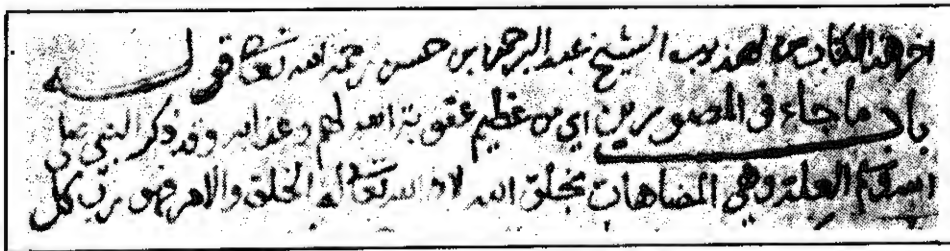 اخر هذا الكتاب من تهذيب الشيخ عبد الرحمن بن حسن رحمه الله تعالى قوله
باب ما جاء في المصورين اي من عظيم عقوبة الله لهم وعذابه وقد ذكر النبي صلى
الله عليه وسلم العلة وهي المضاهات بخلق الله لان الله تعالى له الخلق والامر فهو رب كل